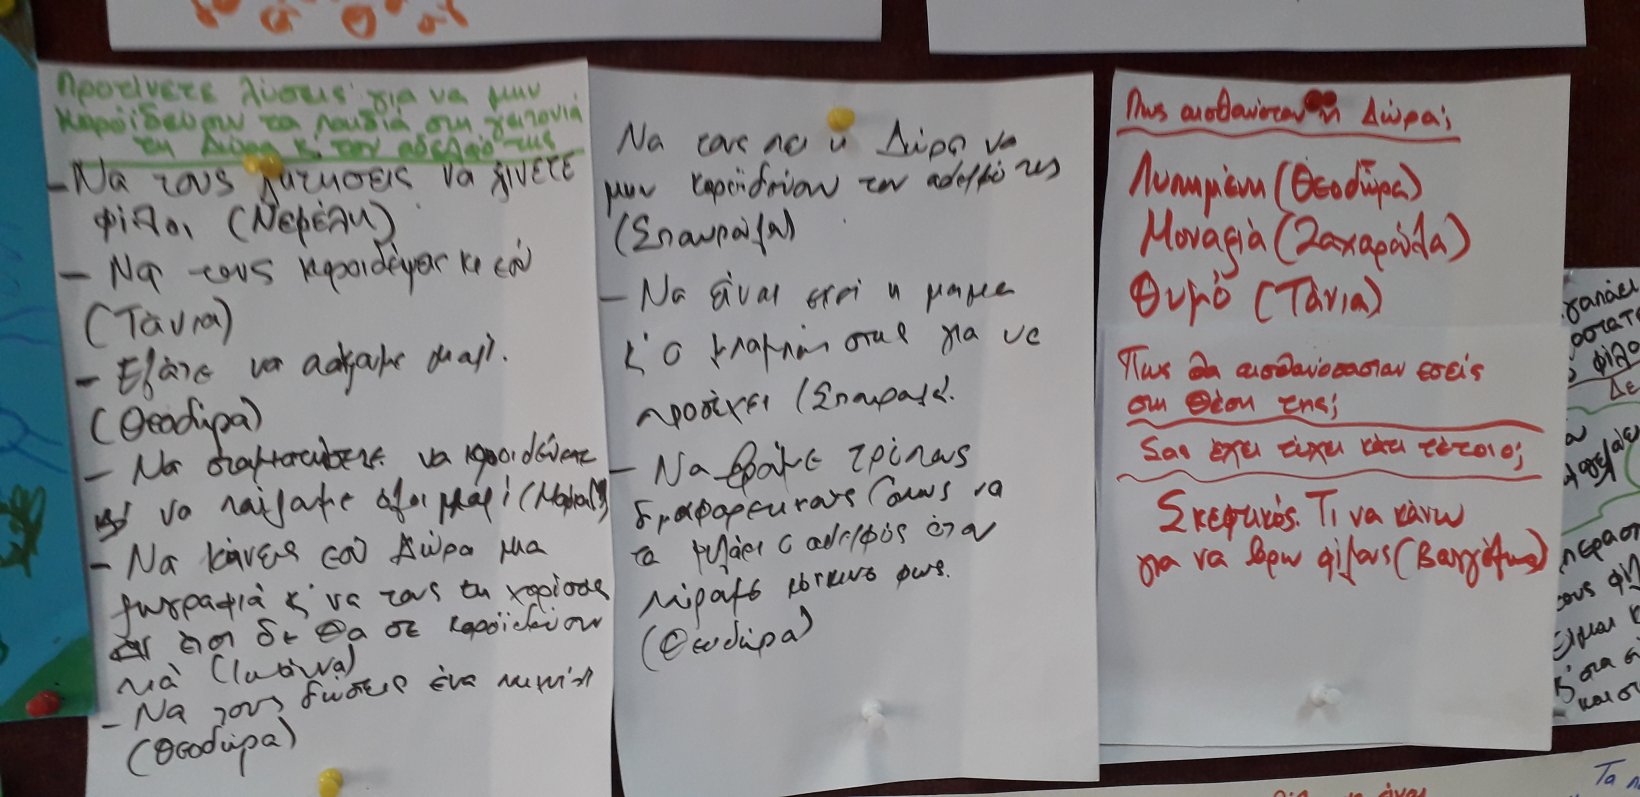 Προτείνετε λύσεις για να μην
κοροϊδεύουν τα παιδιά στη γειτονιά
τη Δώρα κ' τον αδελφό της
- Να τους ζητήσεις να γίνετε
φίλοι (Νεφέλη)
- Να τους κοροιδέψεις κι εσύ
(Τάνια)
- Ελάτε να παίξουμε μαζί.
(Θεοδώρα)
- Να σταματήσετε να κοροιδεύετε
να παίξουμε όλοι μαζί
- Να κάνεις εσύ Δώρα μια
ζωγραφιά κ' να τους τη χαρίσεις
έτσι δε θα σε κοροϊδεύουν
πιά
- Να τους δώσεις ένα παιχνίδι
(Θεοδώρα)
Να τους πει η Δώρα να
μην κοροϊδεύουν τον αδελφό της
(Σταυρούλα)
- Να είναι εκεί η μαμά
κ' ο μπαμπάς τους για να
προσέχει (Σταυρούλα).
- Να βρούμε τρόπους
διαφορετικούς όπως να
το φυλάει ο αδελφός όταν
κόκκινο φως.
(Θεοδώρα)
Πως αισθανόταν η Δώρα;
Λυπημένη (Θεοδώρα)
Μοναξιά (Ζαχαρούλα)
Θυμό (Τάνια)
Πως θα αισθανόσασταν εσείς
στη θέση της;
Σας έχει τύχει κάτι τέτοιο;
Σκεφτικός. Τι να κάνω
για να βρω φίλους (Βαγγέλης)
φίλο
Δε
είμαι
και στ
Τα